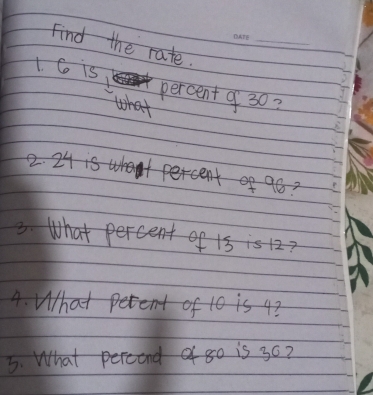 DATE
Find the rate.
1. 6 is what percent of 30?
2. 24 is what percent of 96?
3. What percent of 15 is 12?
4. What petent of 10 is 4?
5. What percend of 80 is 36?